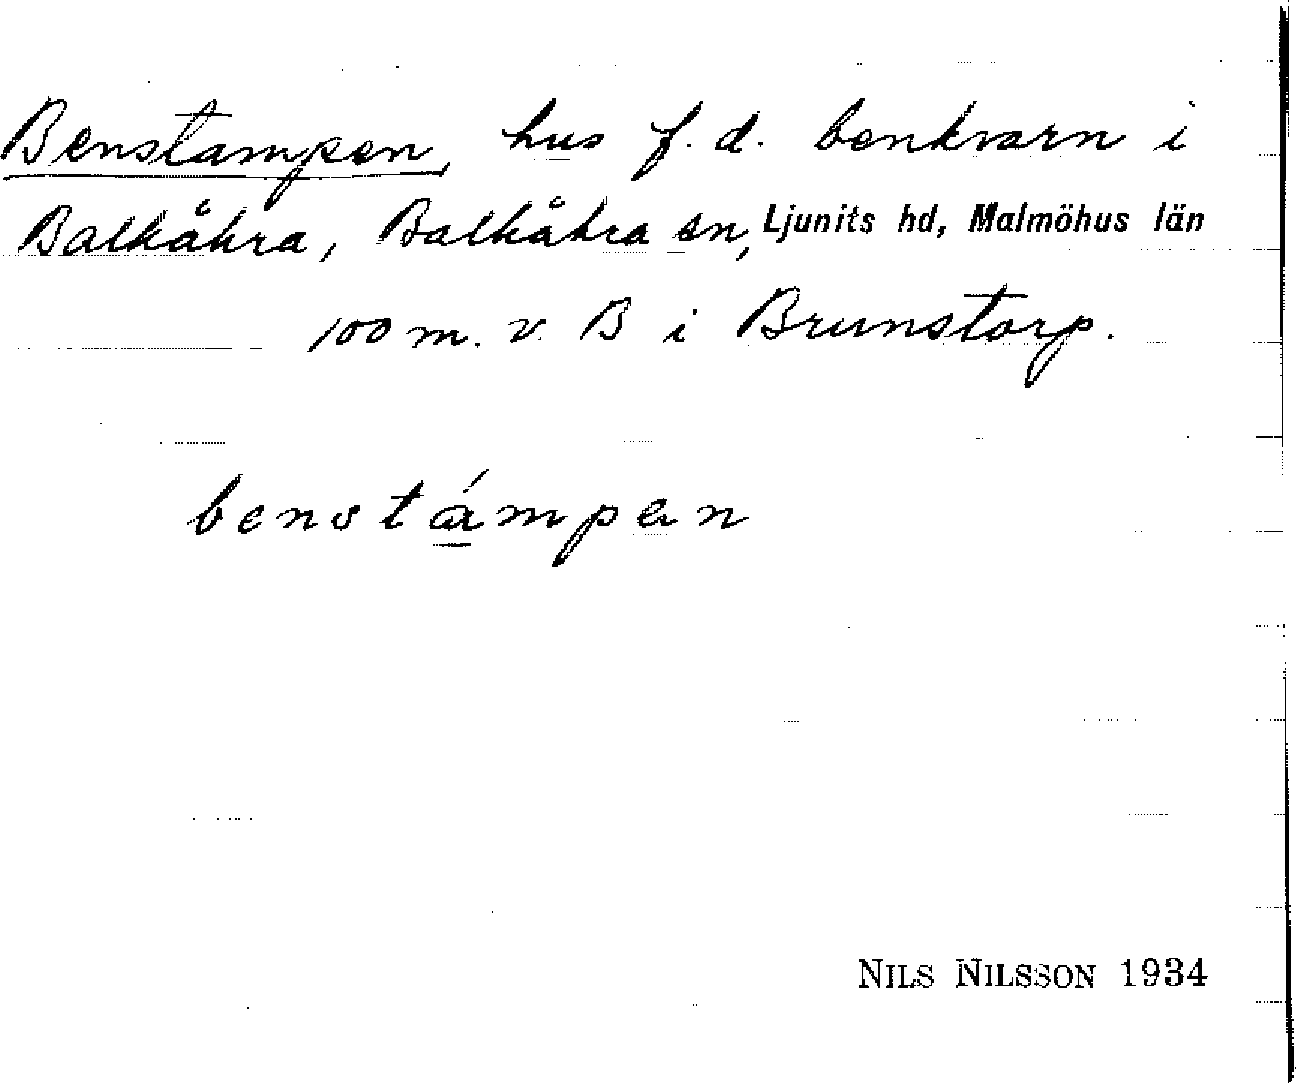 Benstampen, hus f.d. benkvarn i
Balkåkra, Balkåkra sn, Ljunits hd, Malmöhus län
100 m. v. B i Brunstorp.
benstámpen
NILS NILSSON 1934